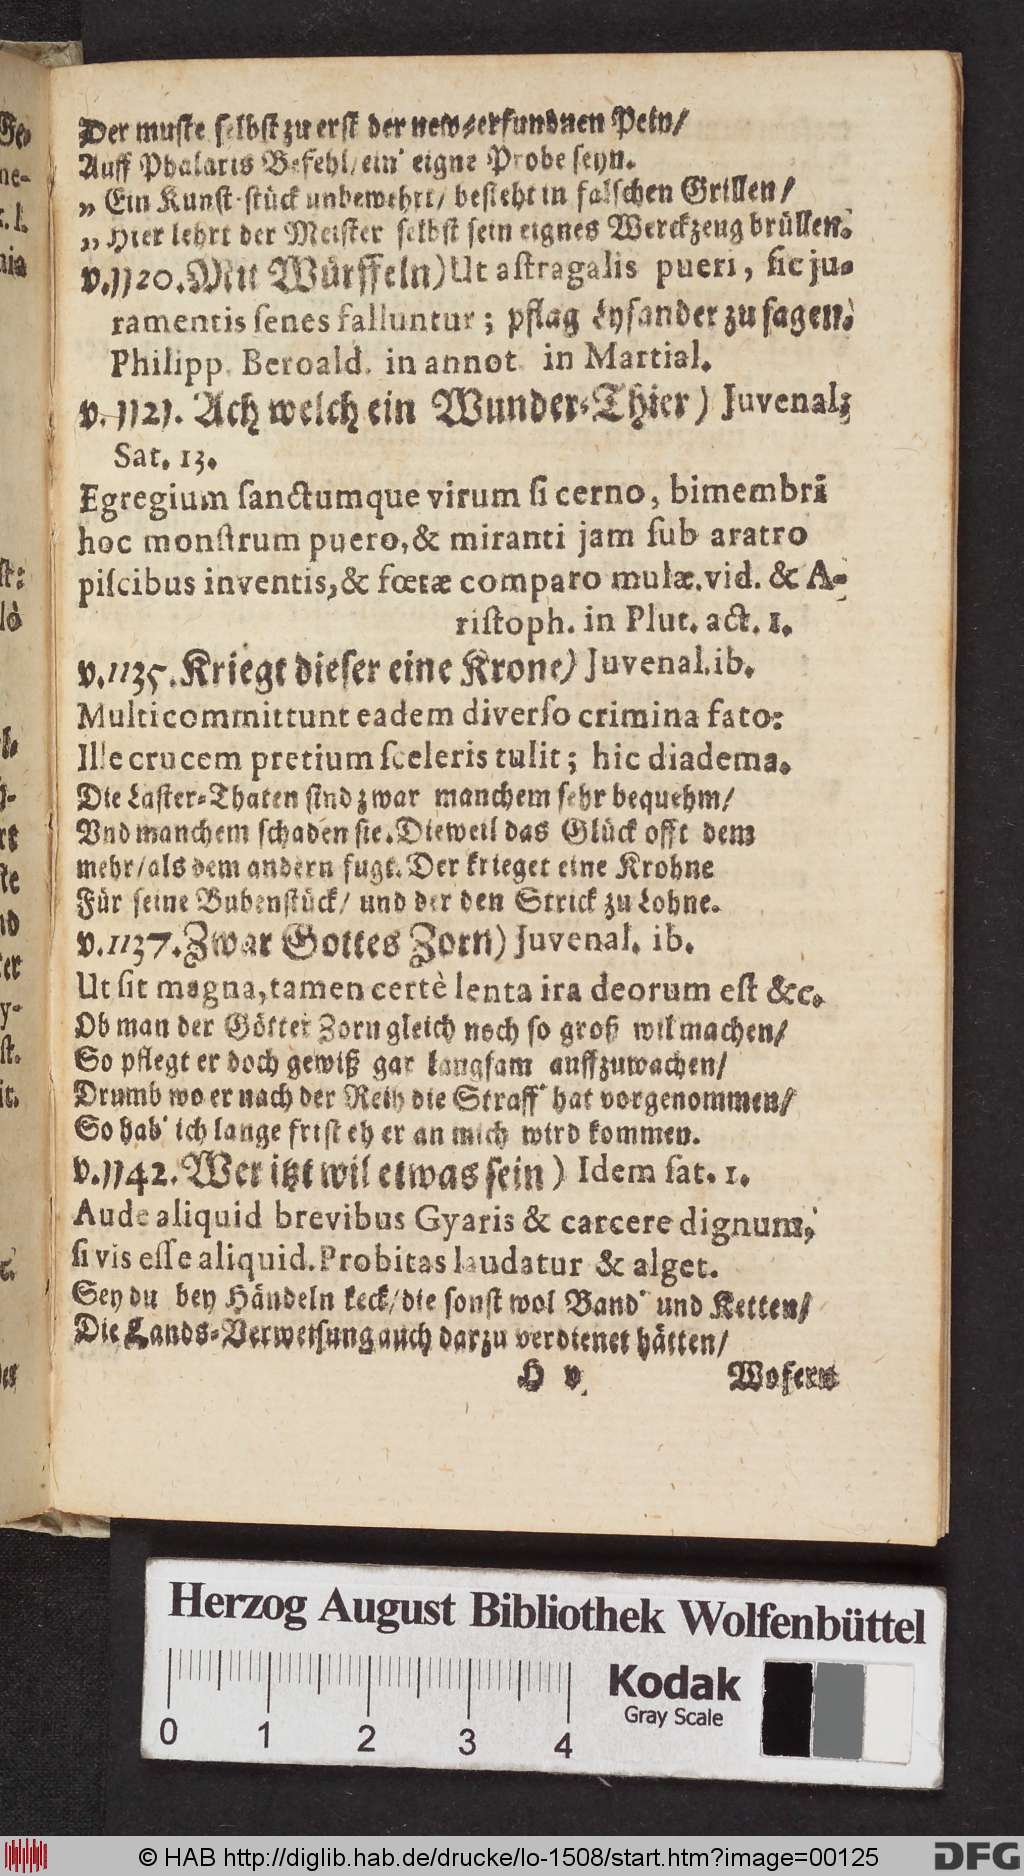 Der muſte ſelbſt zu erſt der new-erfundnen Pein/
Auff Phalaris Befehl/ ein' eigne Probe ſeyn.
„ Ein Kunſt-ſtück unbewehrt/ beſteht in falſchen Grillen/
„ Hier lehrt der Meiſter ſelbſt ſein eignes Werckzeug brüllen.
v. 1120. Mit Würffeln) Ut aſtragalis pueri, ſic ju-
ramentis ſenes falluntur; pflag Lyſander zu ſagen.
Philipp. Beroald. in annot. in Martial.
v. 1121. Ach welch ein Wunder-Thier) Juvenal;
Sat. 13.
Egregium ſanctumque virum ſi cerno, bimembrã
hoc monſtrum puero, & miranti jam ſub aratro
piſcibus inventis, & fœtæ comparo mulæ. vid. & A-
riſtoph. in Plut. act. 1.
v. 1135. Kriegt dieſer eine Krone) Juvenal. ib.
Multi committunt eadem diverſo crimina fato:
Ille crucem pretium ſceleris tulit; hic diadema.
Die Laſter-Thaten ſind zwar manchem ſehr bequehm/
Vnd manchem ſchaden ſie. Dieweil das Glück offt dem
mehr/ als dem andern fugt. Der krieget eine Krohne
Für ſeine Bubenſtück/ und der den Strick zu Lohne.
v. 1137. Zwar Gottes Zorn) Juvenal. ib.
Ut ſit magna, tamen certè lenta ira deorum eſt &c.
Ob man der Götter Zorn gleich noch ſo groß wil machen/
So pflegt er doch gewiß gar langſam auffzuwachen/
Drumb wo er nach der Reih die Straff' hat vorgenommen/
So hab' ich lange friſt eh er an mich wird kommen.
v. 1142. Wer itzt wil etwas ſein) Idem ſat. 1.
Aude aliquid brevibus Gyaris & carcere dignum,
ſi vis eſſe aliquid. Probitas laudatur & alget.
Sey du bey Händeln keck/ die ſonſt wol Band' und Ketten/
Die Lands-Verweiſung auch darzu verdienet hätten/
H v
Wofern
Herzog August Bibliothek Wolfenbüttel
0 1 2 3 4
Kodak
Gray Scale
© HAB http://diglib.hab.de/drucke/lo-1508/start.htm?image=00125
DFG